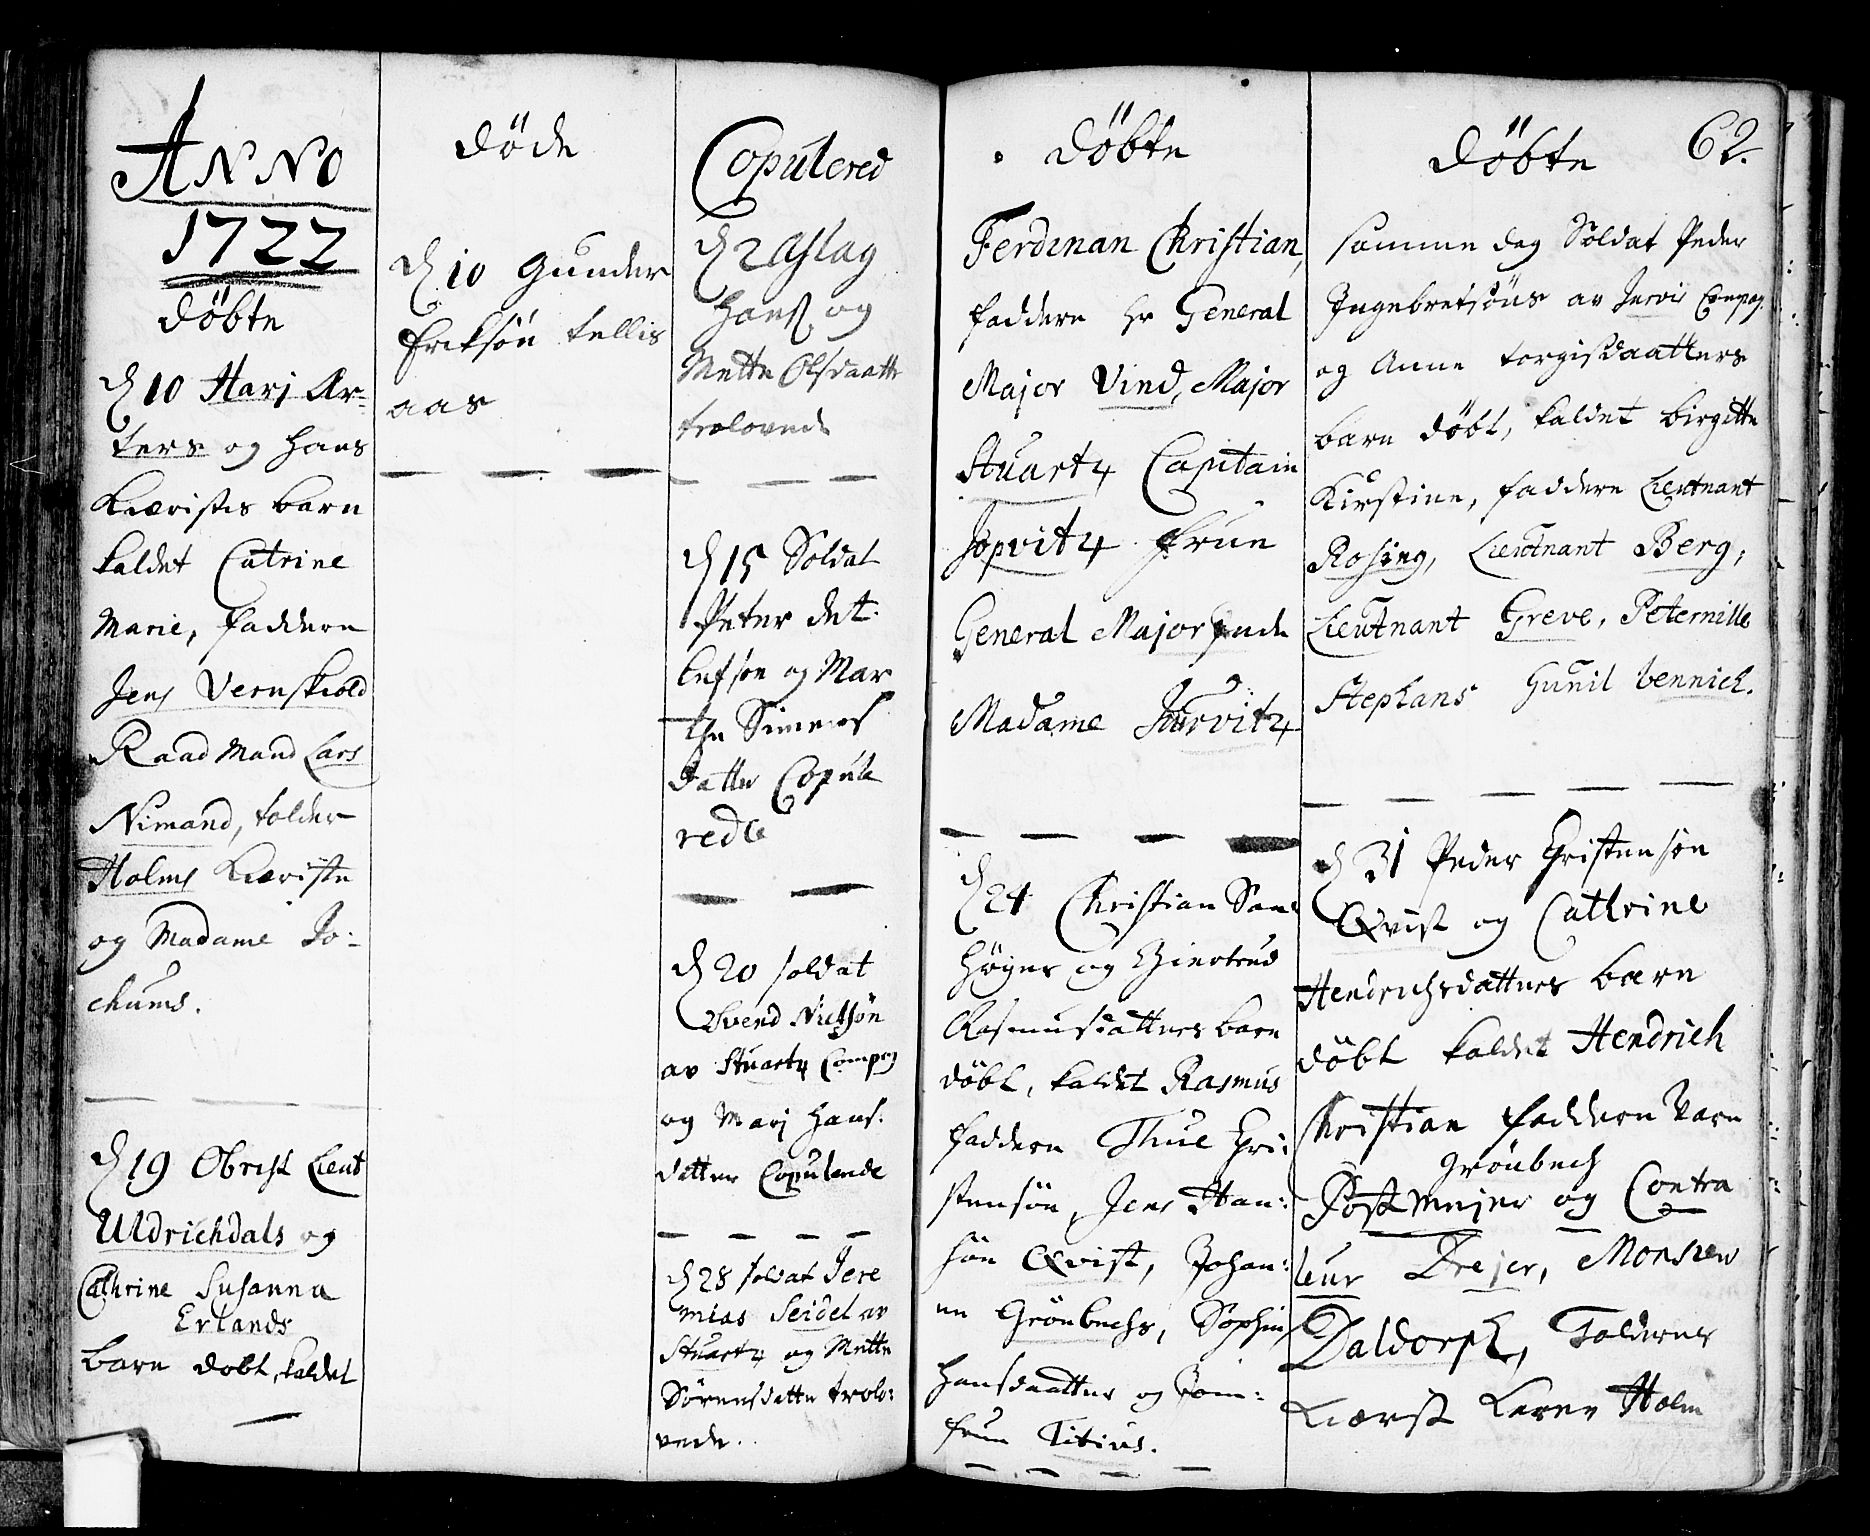 Anno
1722
döbte
d 10 Harj Ar-
ters og hans
Kiæristes barn
kaldet Catrine
Marie, faddere
Jens Vernskiold
Raad Mand Lars
Nimand, tolder
Holms Kiæriste
og Madame Jo:
chums.
d 19 Obrist Lieut
Uldrichdals og
Cathrine Susanna
Erlands
barn döbt, kaldet
döde
d 10 Gunder
Eriksön tellis
aas
Copulered
d 2 Aslag
Hans og
Mette Olsdaatte
trolovede
d 15 Soldat
Peter det
lefsön og Mar
the Simens
datter Copule
rede
d 20 soldat
Svend Nielsön
av Stuartz Compag
og Marj Hans:
datter Copulerede
d 28 soldat Jere
mias Seidel av
Stuartz og Mette
Sörensdatter trolo:
vede.
döbte
Ferdinan Christian,
faddere hr General
Major Vind, Major
Stuartz Capitain
frue
General Majorinde
Madame
d 24 Christian San:
Höyer og Giertrud
Rasmusdatters barn
döbt, kaldet Rasmus
faddere Thue Chri:
stensön, Jens Han:
sön Qvist, Johan:
ne Grönbechs, Sophie
Hansdaatter og Jom:
frue Titius.
döbte 62.
samme dag Soldat Peder
Ingebretsöns av Jervis Compag.
og Anne torgisdaatters
barn döbt, kaldet birgitte
Kirstine, faddere Lieutnant
Rosing, Lieutnant Berg,
Lieutnant Greve, Peternille
Stephans Gunil bennich.
d 31 Peder Christensön
Qvist og Cathrine
Hendrichsdatters barn
döbt kaldet Hendrich
Christian faddere vare
Grönbech
Postmejer og Contra
leur Drejer, Monsieu
Daldorph, Tolderes
Kiærst Karen Holm